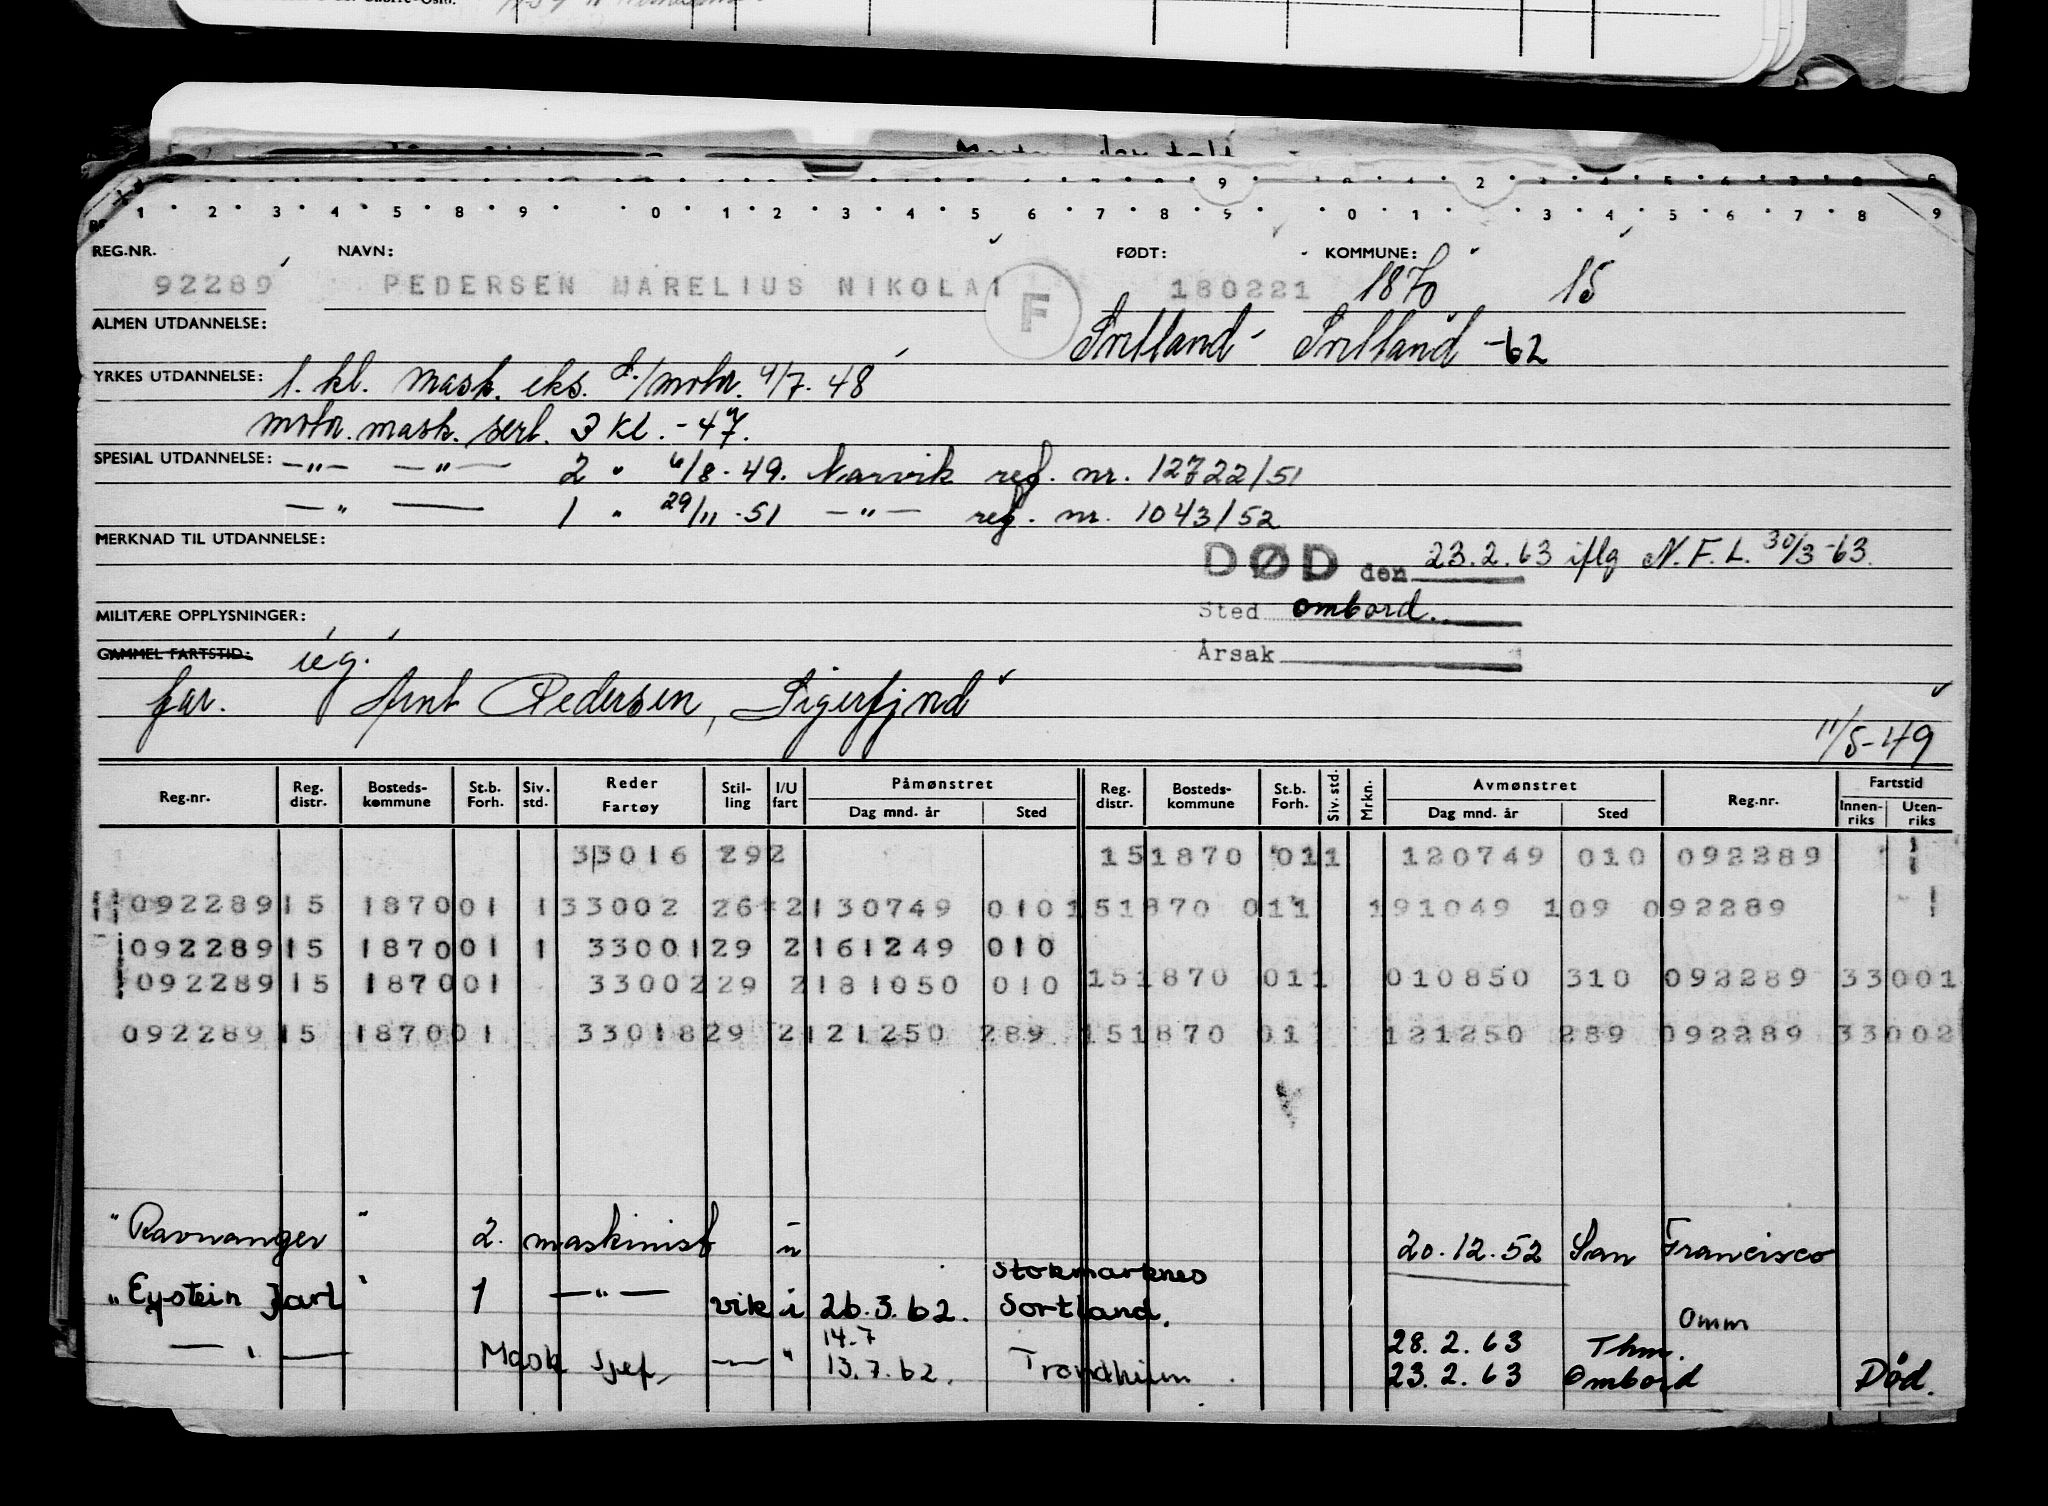 1 · 2 · 3 · 4 · 5 · 8 · 9 · · 0 · 1 · 2 · 3 · 4 · 5 · 6 · 7 · 8 · 9 · 0 · 1 · 2 · 3 · 4 · 5 · 6 · 7 · 8 · 9
REG.NR. NAVN: FØDT: KOMMUNE:
92289 PEDERSEN MARELIUS NIKOLAI F 180221 1870 15
ALMEN UTDANNELSE: Sortland - Sortland -62
YRKES UTDANNELSE: 1. kl. mask. eks. d./motor. 4/7. 48
motor. mask. sert. 3 kl. - 47.
SPESIAL UTDANNELSE: —"— —"— 2 " 6/8 - 49. Narvik reg. nr. 12722/51
—"— 1 " 29/11 - 51 —"— reg. nr. 1043/52
MERKNAD TIL UTDANNELSE:
DØD den 23.2.63 iflg N.F.L. 30/3-63.
MILITÆRE OPPLYSNINGER: Sted ombord.
GAMMEL FARTSTID: ieg. Årsak
far. Arnt Pedersen, Sigerfjord
11/5-49
Reg.nr. Reg. distr. Bosteds-kommune St.b. Forh. Siv. std. Reder Fartøy Stil-ling I/U fart Påmønstret Dag mnd. år Sted Reg. distr. Bosteds-kommune St.b. Forh. Siv. std. Mrkn. Avmønstret Dag mnd. år Sted Reg.nr. Fartstid Innen-riks Uten-riks
33016 292 151870 011 120749 010 092289
092289 15 1870 01 1 33002 26 2 130749 010 151870 011 191049 109 092289
092289 15 1870 01 1 33001 29 2 161249 010
092289 15 1870 01 33002 29 2 181050 010 151870 011 010850 310 092289 33001
092289 15 1870 01 33018 29 2 121250 289 151870 01 121250 289 092289 33002
"Ravnanger" 2. maskinist u 20.12.52 San Francisco
Stokmarknes
"Eystein Jarl" 1 —"— vik i 26.3.62. Sortland.
Omm
14.7 28.2.63 Thm.
—"— Mask sjef, — " 13.7.62. Trondheim 23.2.63 Ombord Død.